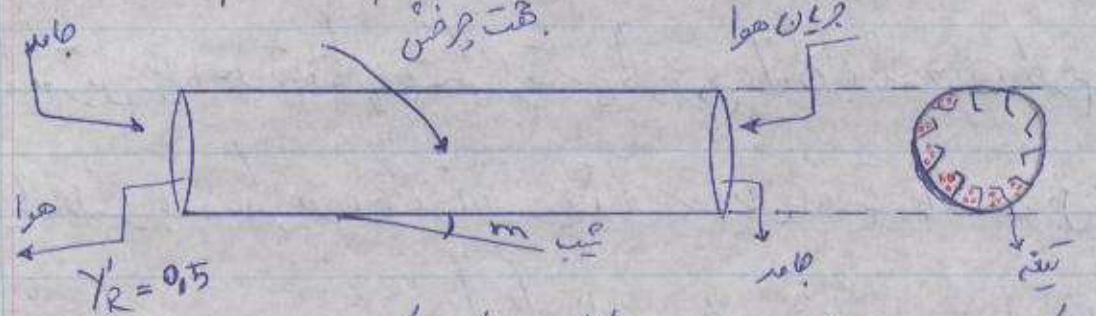 جامد
جهت چرخش
جریان هوا
هوا
Y'R = 0,5
m شیب
جامد
تیغه